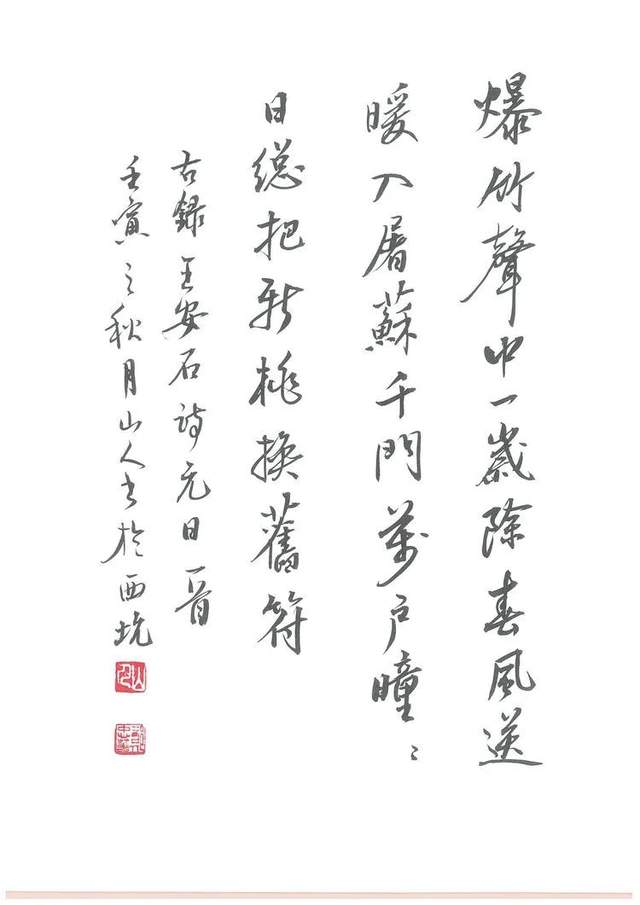 爆竹聲中一歲除春風送
暖入屠蘇千門萬戶曈〻
日總把新桃換舊符
古錄王安石詩元日一首
壬寅之秋月山人書於西坑
山人